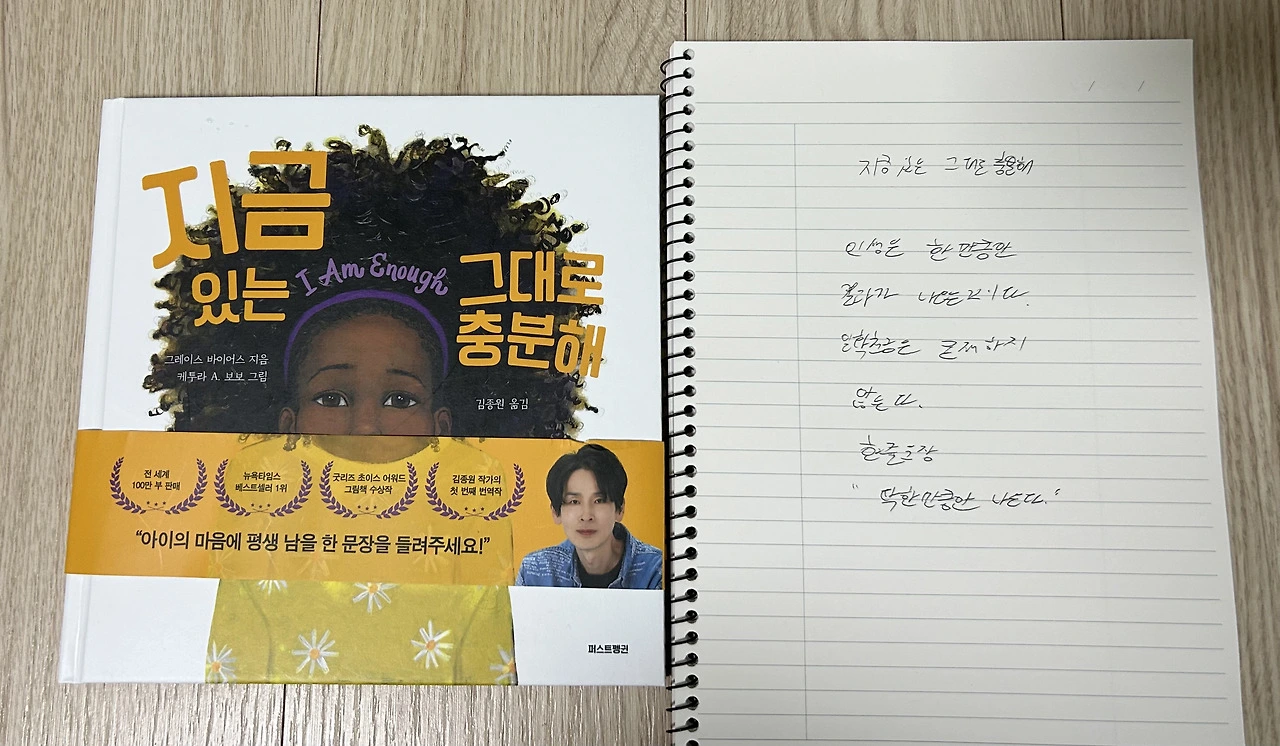 지금
있는
I Am Enough
그대로
충분해
그레이스 바이어스 지음
케투라 A. 보보 그림
김종원 옮김
전 세계
100만 부 판매
뉴욕타임스
베스트셀러 1위
굿리즈 초이스 어워드
그림책 수상작
김종원 작가의
첫 번째 번역작
“아이의 마음에 평생 남을 한 문장을 들려주세요!”
퍼스트펭귄
/ /
지금 있는 그대로 충분해
인성은 한 만큼만
결과가 나오는 것이다.
존재하지
않는다.
한 줄 문장
"딱 한 만큼만 나온다."